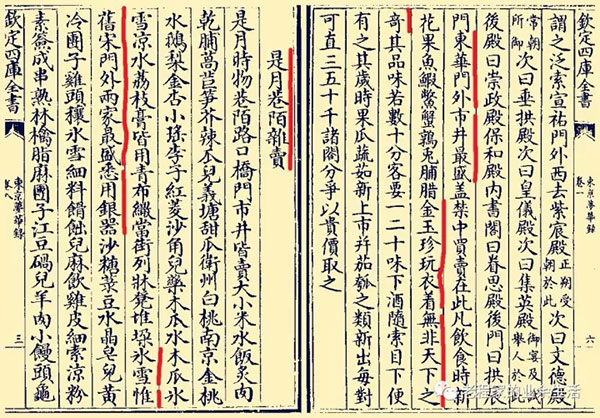 欽定四庫全書
東京夢華錄
卷一
六
謂之泛索宣祐門外西去紫宸殿正朔受朝於此次曰文德殿
常朝所御次曰垂拱殿次曰皇儀殿次曰集英殿御宴及試舉人於此
後殿曰崇政殿保和殿內書閣曰睿思殿後門曰拱辰
門東華門外市井最盛蓋禁中買賣在此凡飲食時新
花果魚鰕鱉蟹鶉兔脯腊金玉珍玩衣着無非天下之
奇其品味若數十分客要一二十味下酒隨索目下便
有之其歲時果瓜蔬茹新上市并茄瓠之類新出每對
可直三五十千諸閤分爭以貴價取之
是月巷陌雜賣
是月時物巷陌路口橋門市井皆賣大小米水飯炙肉
乾脯萵苣笋芥辣瓜兒義塘甜瓜衛州白桃南京金桃
水鵝梨金杏小瑤李子紅菱沙角兒藥木瓜水木瓜冰
雪涼水荔枝膏皆用青布繖當街列牀凳堆垜冰雪惟
舊宋門外兩家最盛悉用銀器沙糖菉豆水晶皂兒黃
冷團子雞頭穰冰雪細料餶飿兒麻飲雞皮細索涼粉
素簽成串熟林檎脂麻團子江豆䃀兒羊肉小饅頭龜
欽定四庫全書
東京夢華錄
卷八
三